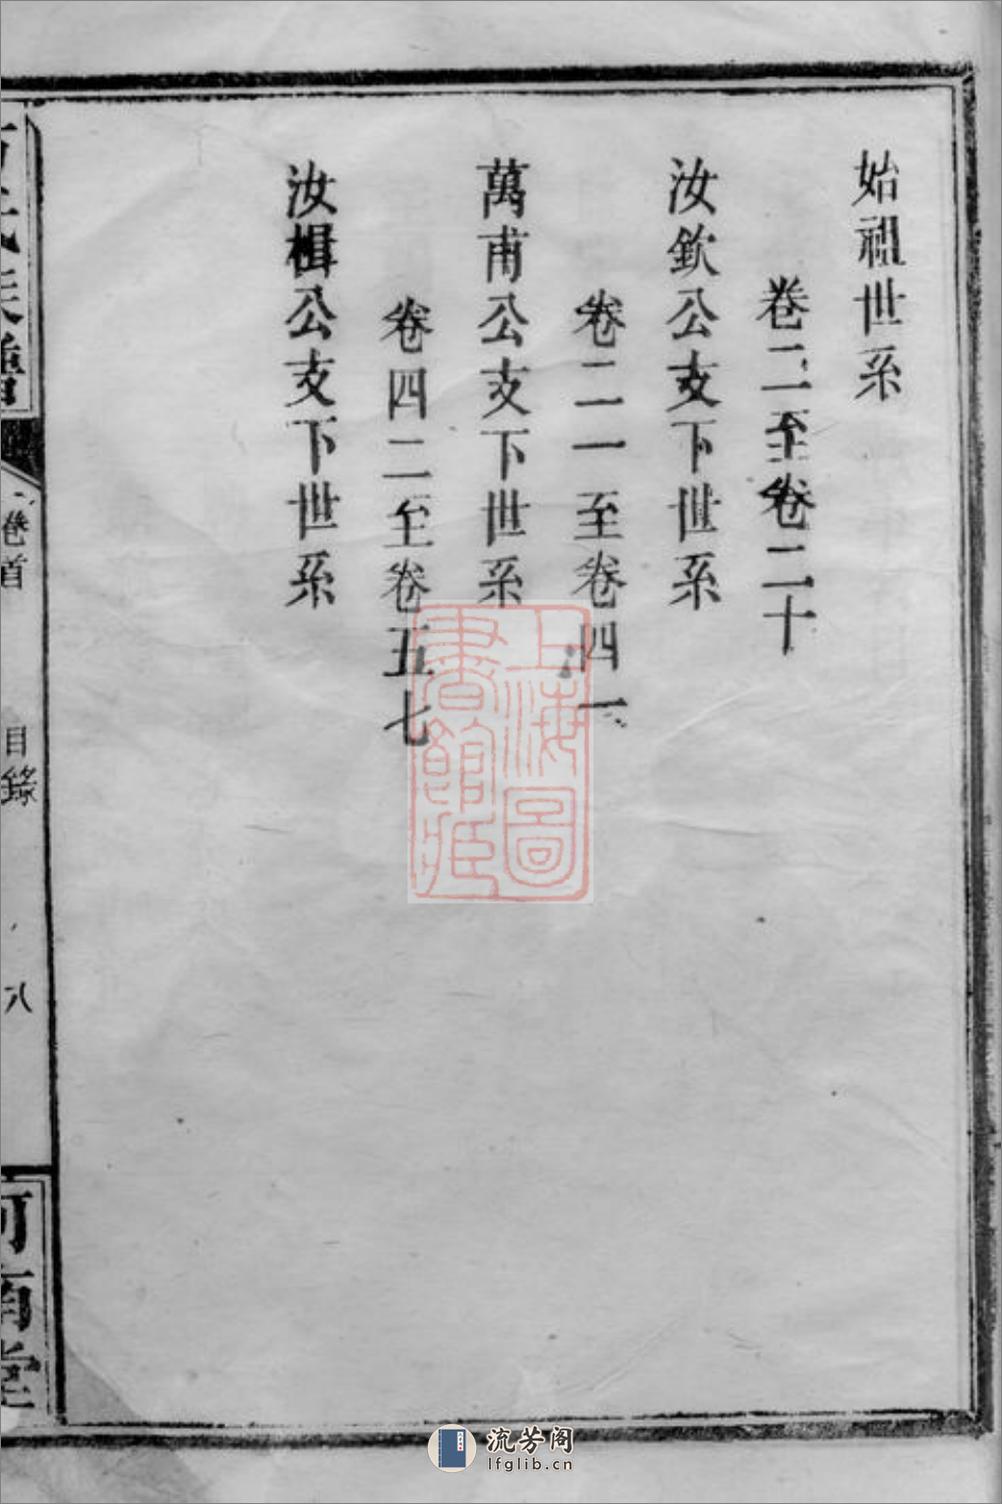 始祖世系
卷二至卷二十
汝欽公支下世系
卷二一至卷四一
萬甫公支下世系
卷四二至卷五七
汝楫公支下世系
氏族譜
卷首
目錄
八
河南堂
上海圖
書館藏
流芳阁
lfglib.cn